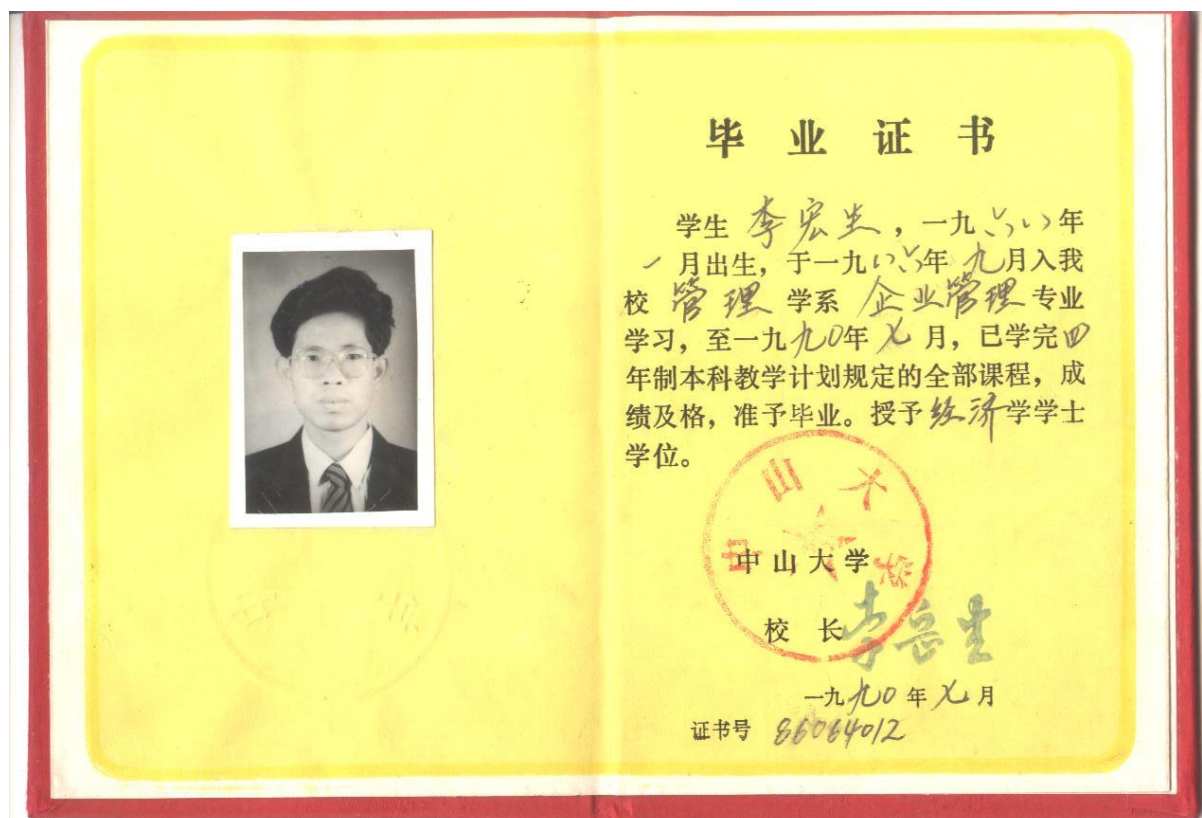 毕业证书
学生 李宏生，一九六八年
一月出生，于一九八六年 九月入我
校 管理 学系 企业管理 专业
学习，至一九九0年 七 月，已学完四
年制本科教学计划规定的全部课程，成
绩及格，准予毕业。授予 经济 学学士
学位。
中山大学
中山大学
校 长 李岳生
一九九0 年 七 月
证书号 86064012